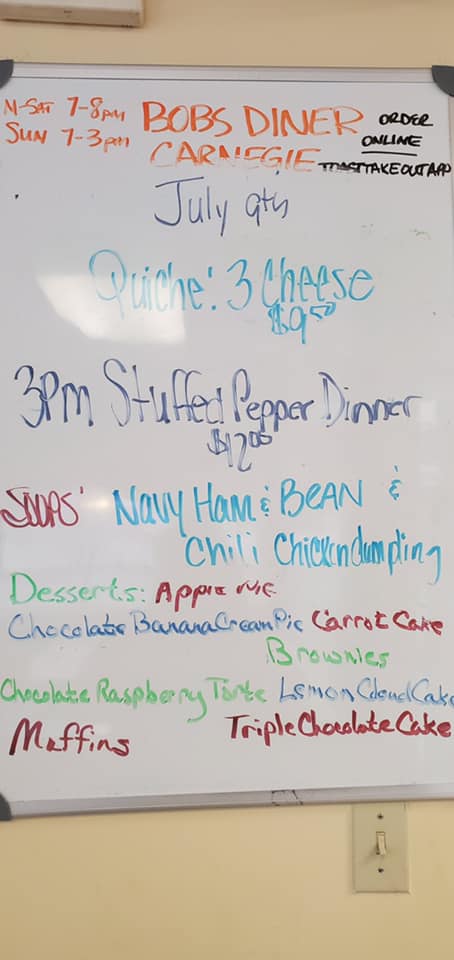 M-SAT 7-8pm BOBS DINER ORDER
SUN 7-3pm CARNEGIE ONLINE
TOASTTAKEOUTAPP
July 9th
Quiche: 3 Cheese
$9.50
3pm Stuffed Pepper Dinner
$12.00
SOUPS: Navy Ham & BEAN &
Chili Chickendumpling
Desserts: Apple Pie
Chocolate Banana Cream Pie Carrot Cake
Brownies
Chocolate Raspberry Torte Lemon Cloud Cake
Muffins Triple Chocolate Cake